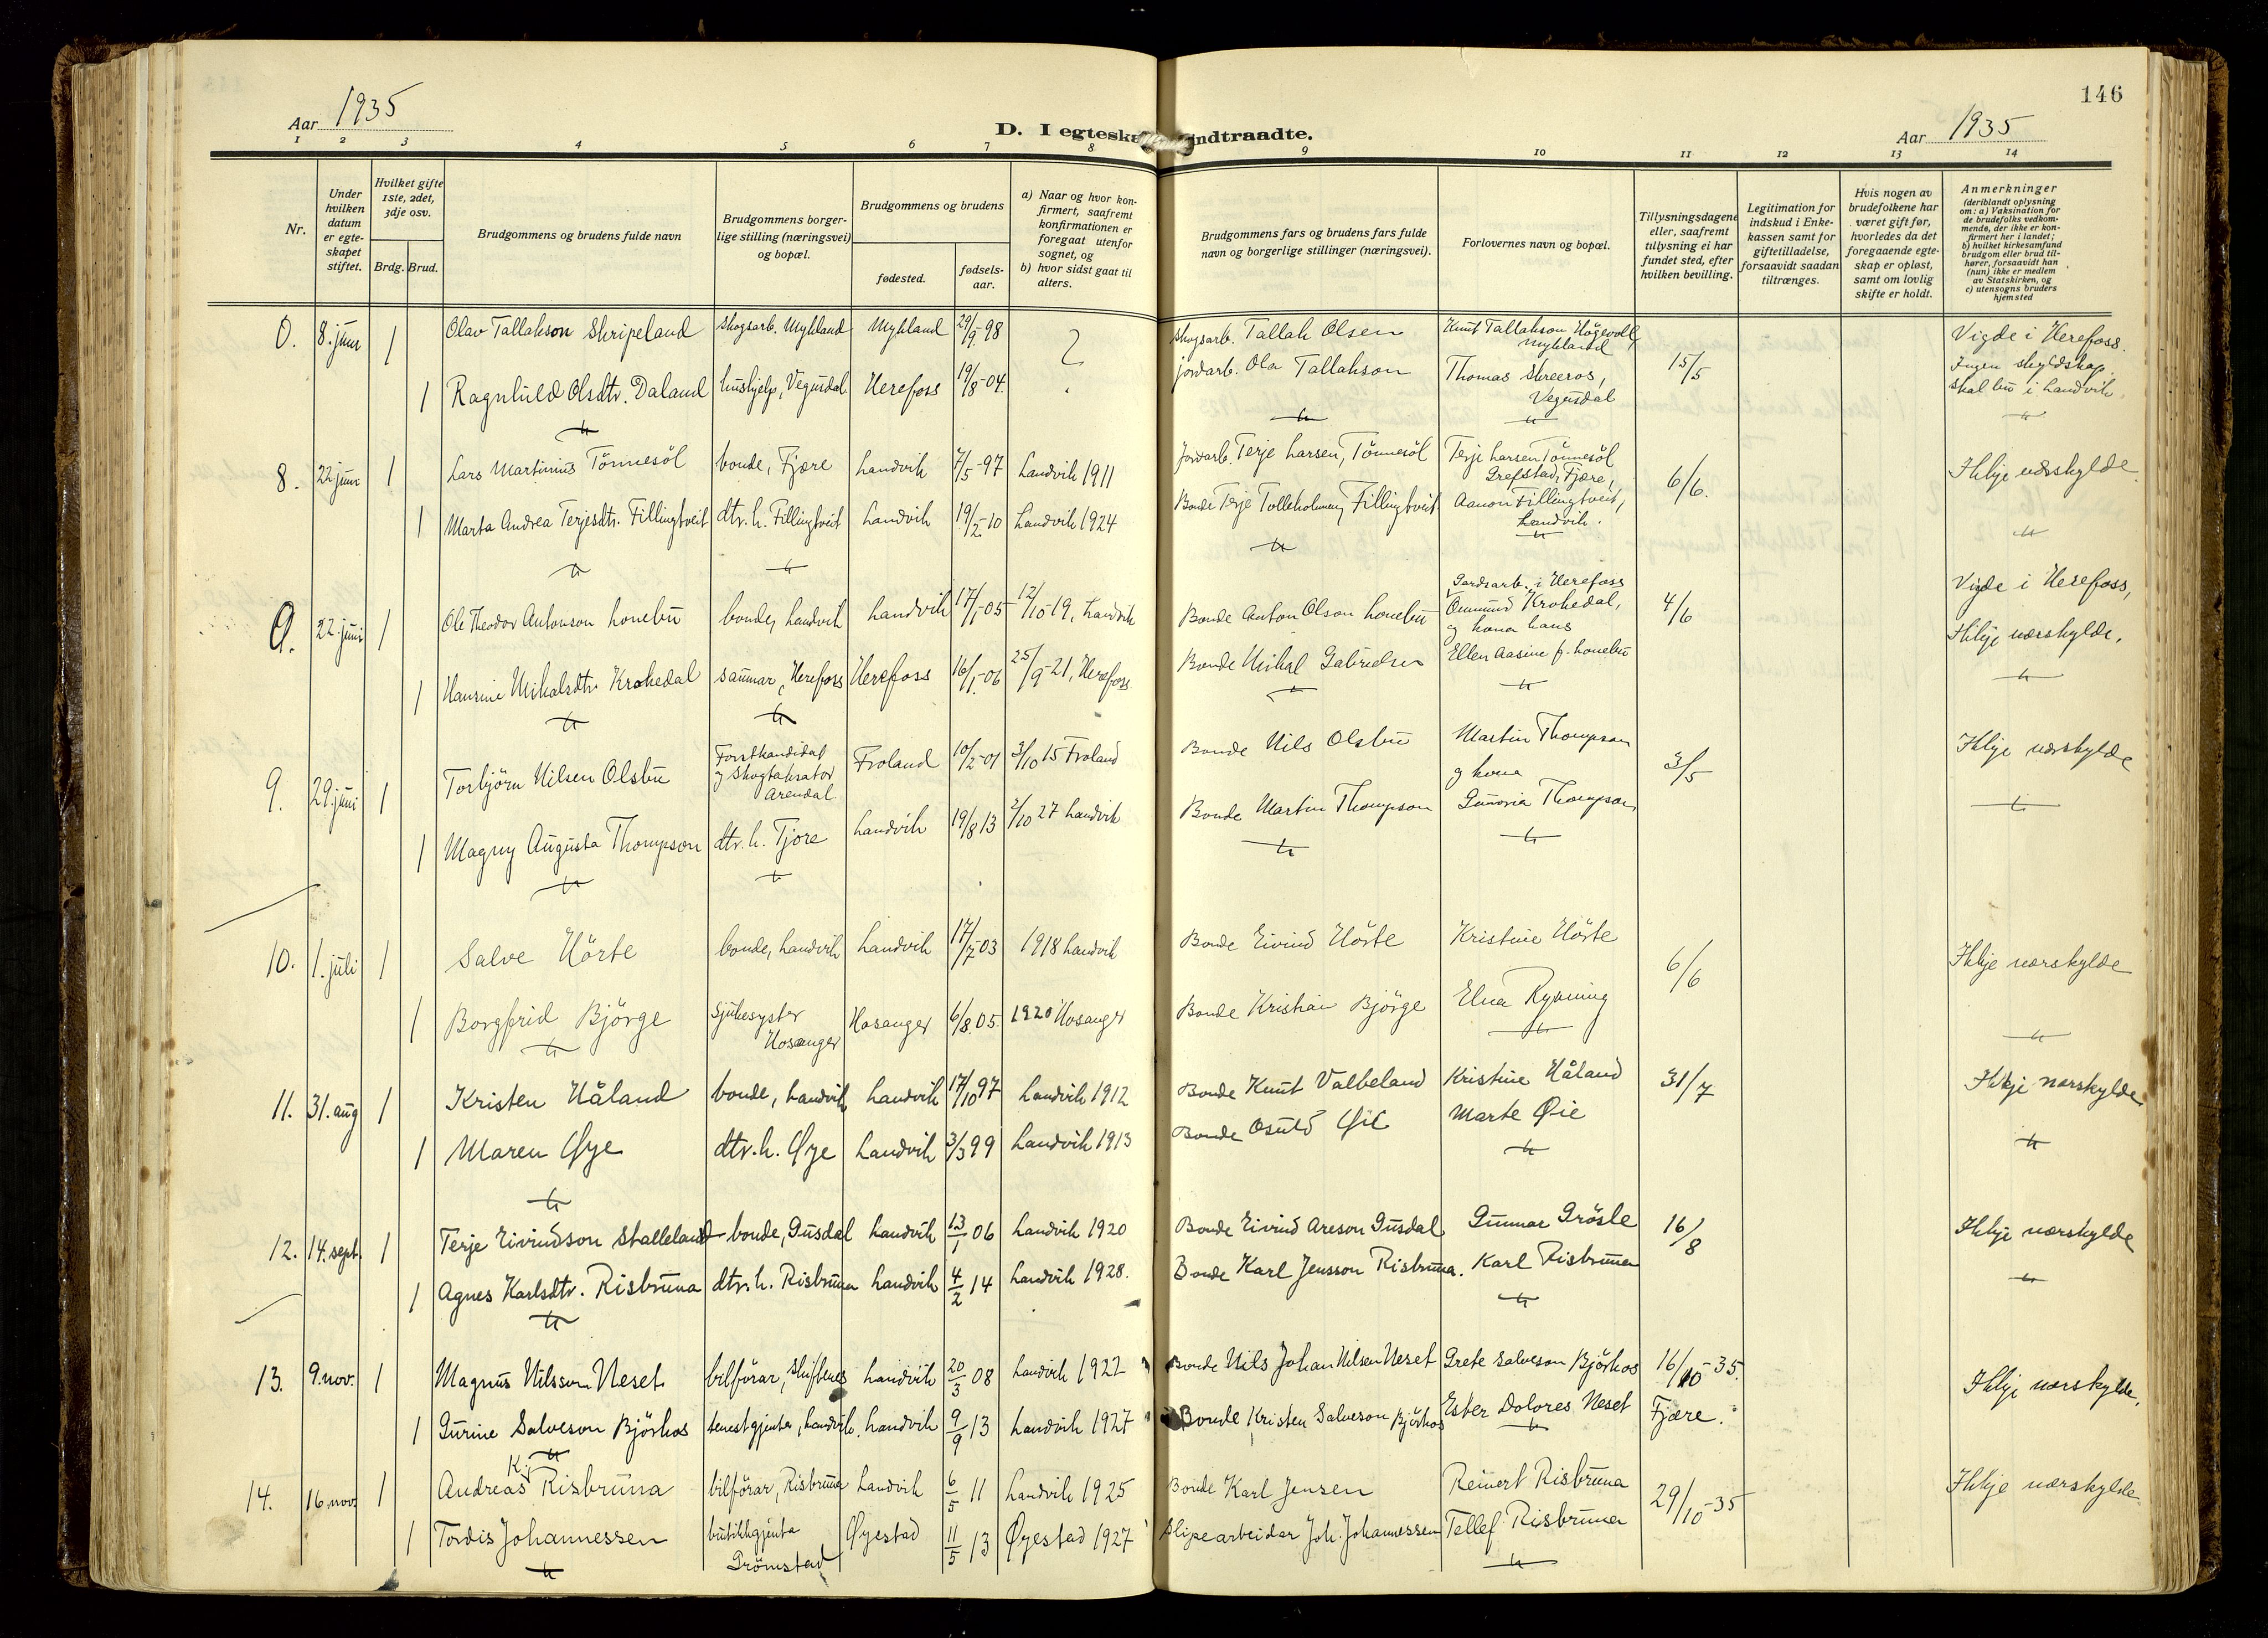 146
Aar 1935
D. I egteska
indtraadte.
Aar 1935
1 2 3 4 5 6 7 8 9 10 11 12 13 14
Nr.
Under hvilken datum er egteskapet stiftet.
Hvilket gifte 1ste, 2det, 3dje osv.
Brdg. Brud.
Brudgommens og brudens fulde navn
Brudgommens borgerlige stilling (næringsvei) og bopæl.
Brudgommens og brudens
fødested.
fødselsaar.
a) Naar og hvor konfirmert, saafremt konfirmationen er foregaat utenfor sognet, og
b) hvor sidst gaat til alters.
Brudgommens fars og brudens fars fulde navn og borgerlige stillinger (næringsvei).
Forlovernes navn og bopæl.
Tillysningsdagene eller, saafremt tillysning ei har fundet sted, efter hvilken bevilling.
Legitimation for indskud i Enkekassen samt for giftetilladelse, forsaavidt saadan tiltrænges.
Hvis nogen av brudefolkene har været gift før, hvorledes da det foregaaende egteskap er opløst, samt om lovlig skifte er holdt.
Anmerkninger (deriblandt oplysning om: a) Vaksination for de brudefolks vedkommende, der ikke er konfirmert her i landet; b) hvilket kirkesamfund brudgom eller brud tilhører, forsaavidt han (hun) ikke er medlem av Statskirken, og c) utensogns bruders hjemsted
0. 8. juni 1 Olav Tallakson Skripeland skogsarb. Mykland Mykland 29/9-98 Skogsarb. Tallak Olsen Knut Tallakson Högevoll, Mykland 15/5 Vigde i Herefoss. Ingen skyldskap. Skal bu i Landvik.
1 Ragnhild Olsdtr. Daland hushjelp, Vegusdal Herefoss 19/8-04. jordarb. Ola Tallakson Thomas Skreeros, Vegusdal
8. 22 juni 1 Lars Martinius Tönnesöl bonde, Fjære Landvik 7/5-97 Landvik 1911 Jordarb. Terje Larsen, Tönnesöl Terje Larsen Tönnesöl Grefstad, Fjære, 6/6. Ikkje nærskylde
1 Marta Andrea Terjesdtr. Fillingtveit dtr. h. Fillingtveit Landvik 19/2-10 Landvik 1924 Bonde Terje Tolleholmen, Fillingtveit Aanon Fillingtveit, Landvik.
0. 22. juni 1 Ole Theodor Antonson Lonebu bonde, Landvik Landvik 17/1-05 12/10-19, Landvik Bonde Anton Olson Lonebu Gardsarb. i Herefoss Ommund Krokedal, og kona hans 4/6 Vigde i Herefoss, Ikkje nærskylde.
1 Hansine Mikalsdtr. Krokedal saumar, Herefoss Herefoss 16/1-06 25/9-21, Herefoss Bonde Mikal Gabrielsen Ellen Aasine f. Lonebu
9. 29. juni 1 Torbjörn Nilsen Olsbu Forstkandidat og skogtaksator Arendal Froland 10/2-01 3/10 15 Froland Bonde Nils Olsbu Martin Thompson og kona 3/5 Ikkje nærskylde
1 Magny Augusta Thompson dtr. h. Tjore Landvik 19/8 13 2/10 27 Landvik Bonde Martin Thompson Gunvia Thompson
10. 1. juli 1 Salve Hörte bonde, Landvik Landvik 17/7-03 1918 Landvik Bonde Eivind Hörte Kristine Hörte 6/6 Ikkje nærskylde
1 Borgfrid Björge Sjukesyster Hosanger Hosanger 6/8. 05. 1920 Hosanger Bonde Kristian Björge Elna Ryening
11. 31. aug 1 Kristen Håland bonde, Landvik Landvik 17/10 97 Landvik 1912 Bonde Knut Valbeland Kristine Håland 31/7 Ikkje nærskylde
1 Maren Øye dtr. h. Øye Landvik 3/3 99 Landvik 1913 Bonde Osuld Øie Marte Øie
12. 14. sept. 1 Terje Eivindson Stalleland bonde, Gusdal Landvik 13/1 06 Landvik 1920 Bonde Eivind Areson Gusdal Gunnar Grösle 16/8 Ikkje nærskylde
1 Agnes Karlsdtr. Risbruna dtr. h. Risbruna Landvik 4/2 14 Landvik 1928. Bonde Karl Jensson Risbruna. Karl Risbruna
13. 9. nov. 1 Magnus Nilsson Neset bilförar, Skiftenes Landvik 20/3 08 Landvik 1922 Bonde Nils Johan Nilsen Neset Grete Salveson Björkos 16/10-35. Ikkje nærskylde,
1 Gurine Salveson Björkos tenestgjenta, Landvik. Landvik 9/9 13 Landvik 1927 Bonde Kristen Salveson Björkos Ester Dolores Neset Fjære.
14. 16. nov. 1 Andreas K. Risbruna bilförar, Risbruna Landvik 6/5 11 Landvik 1925 Bonde Karl Jensen Reinert Risbruna 29/10-35 Ikkje nærskylde
1 Tordis Johannessen butikkgjenta Grömstad Øyestad 11/5 13 Øyestad 1927 Slipearbeider Joh. Johannessen Tellef Risbruna